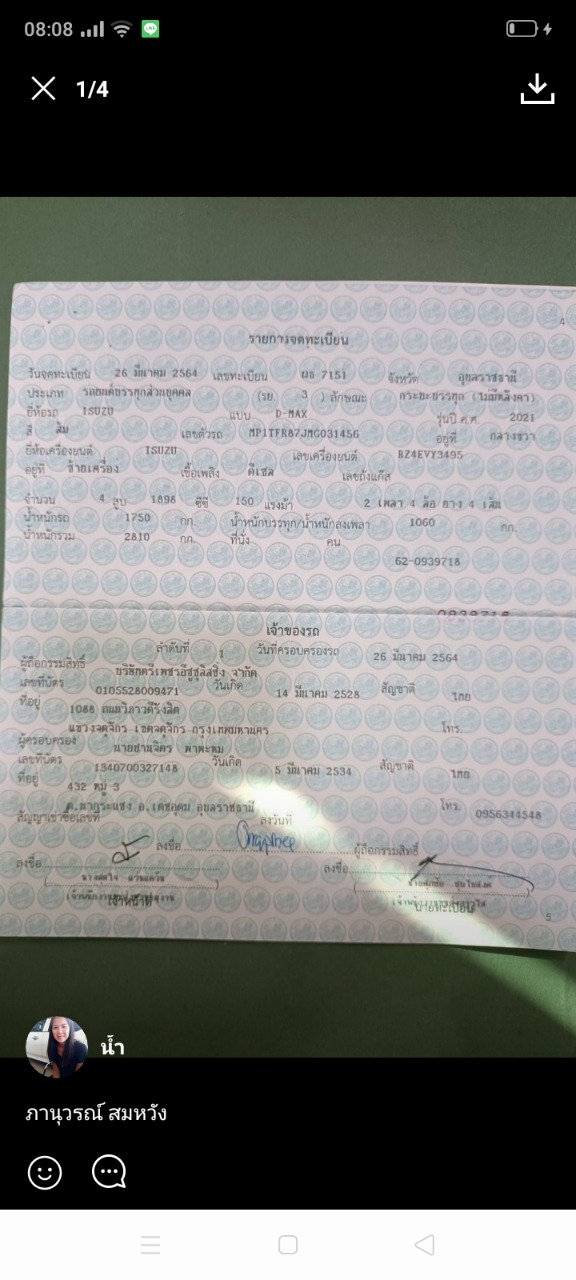 08:08
1/4
4
รายการจดทะเบียน
วันจดทะเบียน 26 มีนาคม 2564 เลขทะเบียน ผธ 7151 จังหวัด อุบลราชธานี
ประเภท รถยนต์บรรทุกส่วนบุคคล (รย. 3 ) ลักษณะ กระบะบรรทุก (ไม่มีหลังคา)
ยี่ห้อรถ ISUZU แบบ D-MAX รุ่นปี ค.ศ. 2021
สี ส้ม เลขตัวรถ MP1TFR87JMG031456 อยู่ที่ กลางขวา
ยี่ห้อเครื่องยนต์ ISUZU เลขเครื่องยนต์ RZ4EVY3495
อยู่ที่ ซ้ายเครื่อง เชื้อเพลิง ดีเซล เลขถังแก๊ส
จำนวน 4 สูบ 1898 ซีซี 150 แรงม้า 2 เพลา 4 ล้อ ยาง 4 เส้น
น้ำหนักรถ 1750 กก. น้ำหนักบรรทุก/น้ำหนักลงเพลา 1060 กก.
น้ำหนักรวม 2810 กก. ที่นั่ง คน
62-0939718
เจ้าของรถ
ลำดับที่ 1 วันที่ครอบครองรถ 26 มีนาคม 2564
ผู้ถือกรรมสิทธิ์ บริษัทตรีเพชรอีซูซุลิสซิ่ง จำกัด
เลขที่บัตร 0105528009471 วันเกิด 14 มีนาคม 2528 สัญชาติ ไทย
ที่อยู่ 1088 ถนนวิภาวดีรังสิต
แขวงจตุจักร เขตจตุจักร กรุงเทพมหานคร โทร.
ผู้ครอบครอง
เลขที่บัตร 1340700327148 วันเกิด 5 มีนาคม 2534 สัญชาติ ไทย
ที่อยู่ 432 หมู่ 3
อ.เดชอุดม อุบลราชธานี โทร. 0956344548
สัญญาเช่าซื้อเลขที่ ลงวันที่
ลงชื่อ ผู้ถือกรรมสิทธิ์
ลงชื่อ ลงชื่อ
เจ้าหน้าที่ นายทะเบียน
5
น้ำ
ภานุวรณ์ สมหวัง